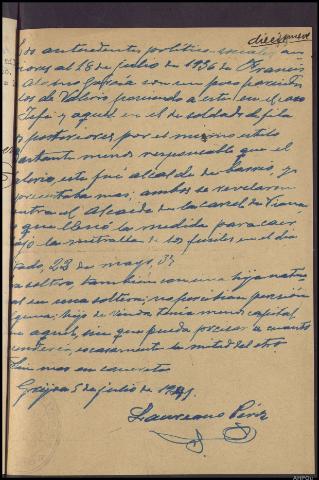 diecinueve
los antecedentes politico-sociales, an
riores al 18 de julio de 1936 de Francis
Alonso Garcia son un poco parecidos
los de Valerio poniendo a este en el caso
Jefe y aquel en el de soldado de fila
posteriores por el mismo estilo
bastante menos responsable que el
Valerio, este fué alcalde de barrio, y
representaba mas; ambos se revelaron
contra el Alcaide de la carcel de
que llenó la medida para caer
bajo la metralla de los fusiles en el dia
tado, 23 de mayo, 37
soltero, tambien con una hija natu
al en una soltera; no perciban pension
guna; hijo de viuda tenia menos capital
que aquel, sin que pueda precisar a cuanto
escasamente la mitad del otro.
Sin mas en concreto
5 de julio de 1941.
Laureano Pérez
AHPOu